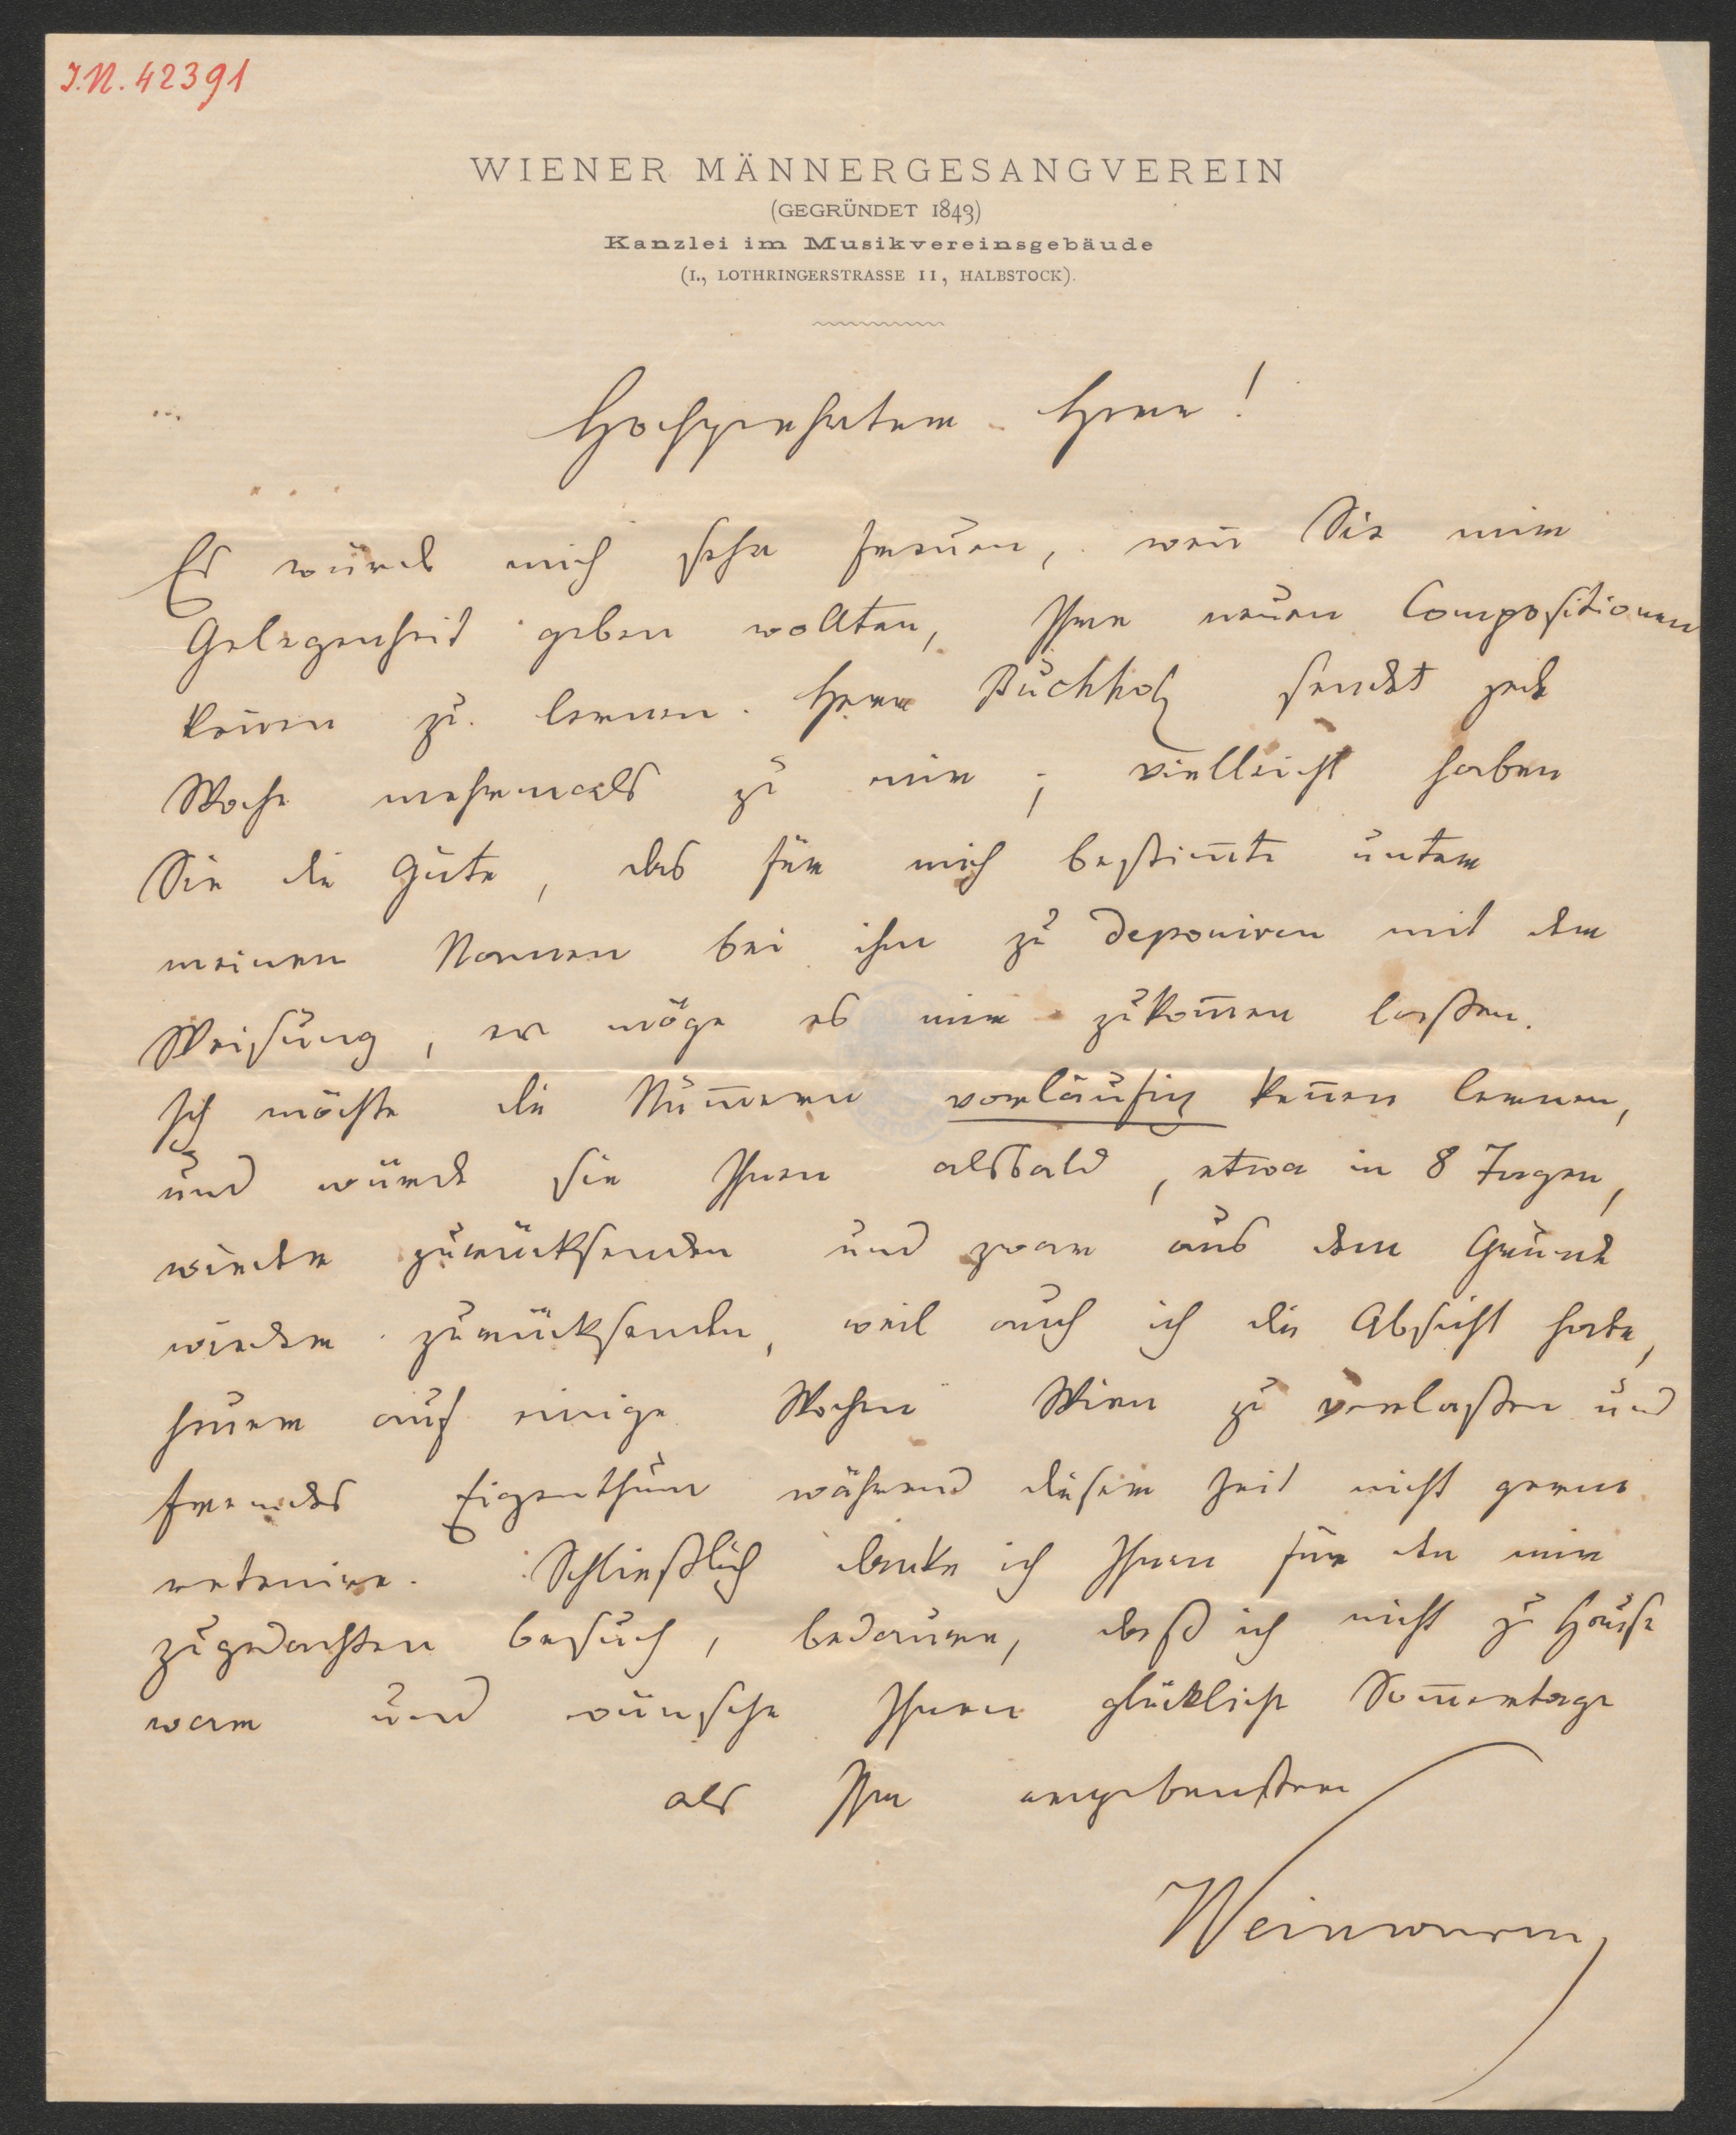 J.N. 42391
WIENER MÄNNERGESANGVEREIN
(GEGRÜNDET 1843)
Kanzlei im Musikvereinsgebäude
(I., LOTHRINGERSTRASSE 11, HALBSTOCK).
Hochgeehrter Herr!
Es würde mich sehr freuen, wen̄ Sie mir
Gelegenheit geben wollten, Ihre neuen Compositionen
ken̄en zu lernen. Herr Buchholz sendet jede
Woche mehrmals zu mir; vielleicht haben
Sie die Güte, das für mich bestim̄te unter
meinem Namen bei ihm zu deponiren mit der
Weisung, er möge es mir zukom̄en laßen.
Ich möchte die Num̄ern vorläufig ken̄en lernen,
und würde sie Ihnen alsbald, etwa in 8 Tagen,
wieder zurücksenden und zwar aus dem Grunde
wieder zurücksenden, weil auch ich die Absicht habe,
heuer auf einige Wochen Wien zu verlaßen und
fremdes Eigenthum während dieser Zeit nicht gerne
retenire. Schließlich danke ich Ihnen für den mir
zugedachten Besuch, bedaure, daß ich nicht zu Hause
war und wünsche Ihnen glückliche Som̄ertage
als Ihr ergebenster
Weinwurm